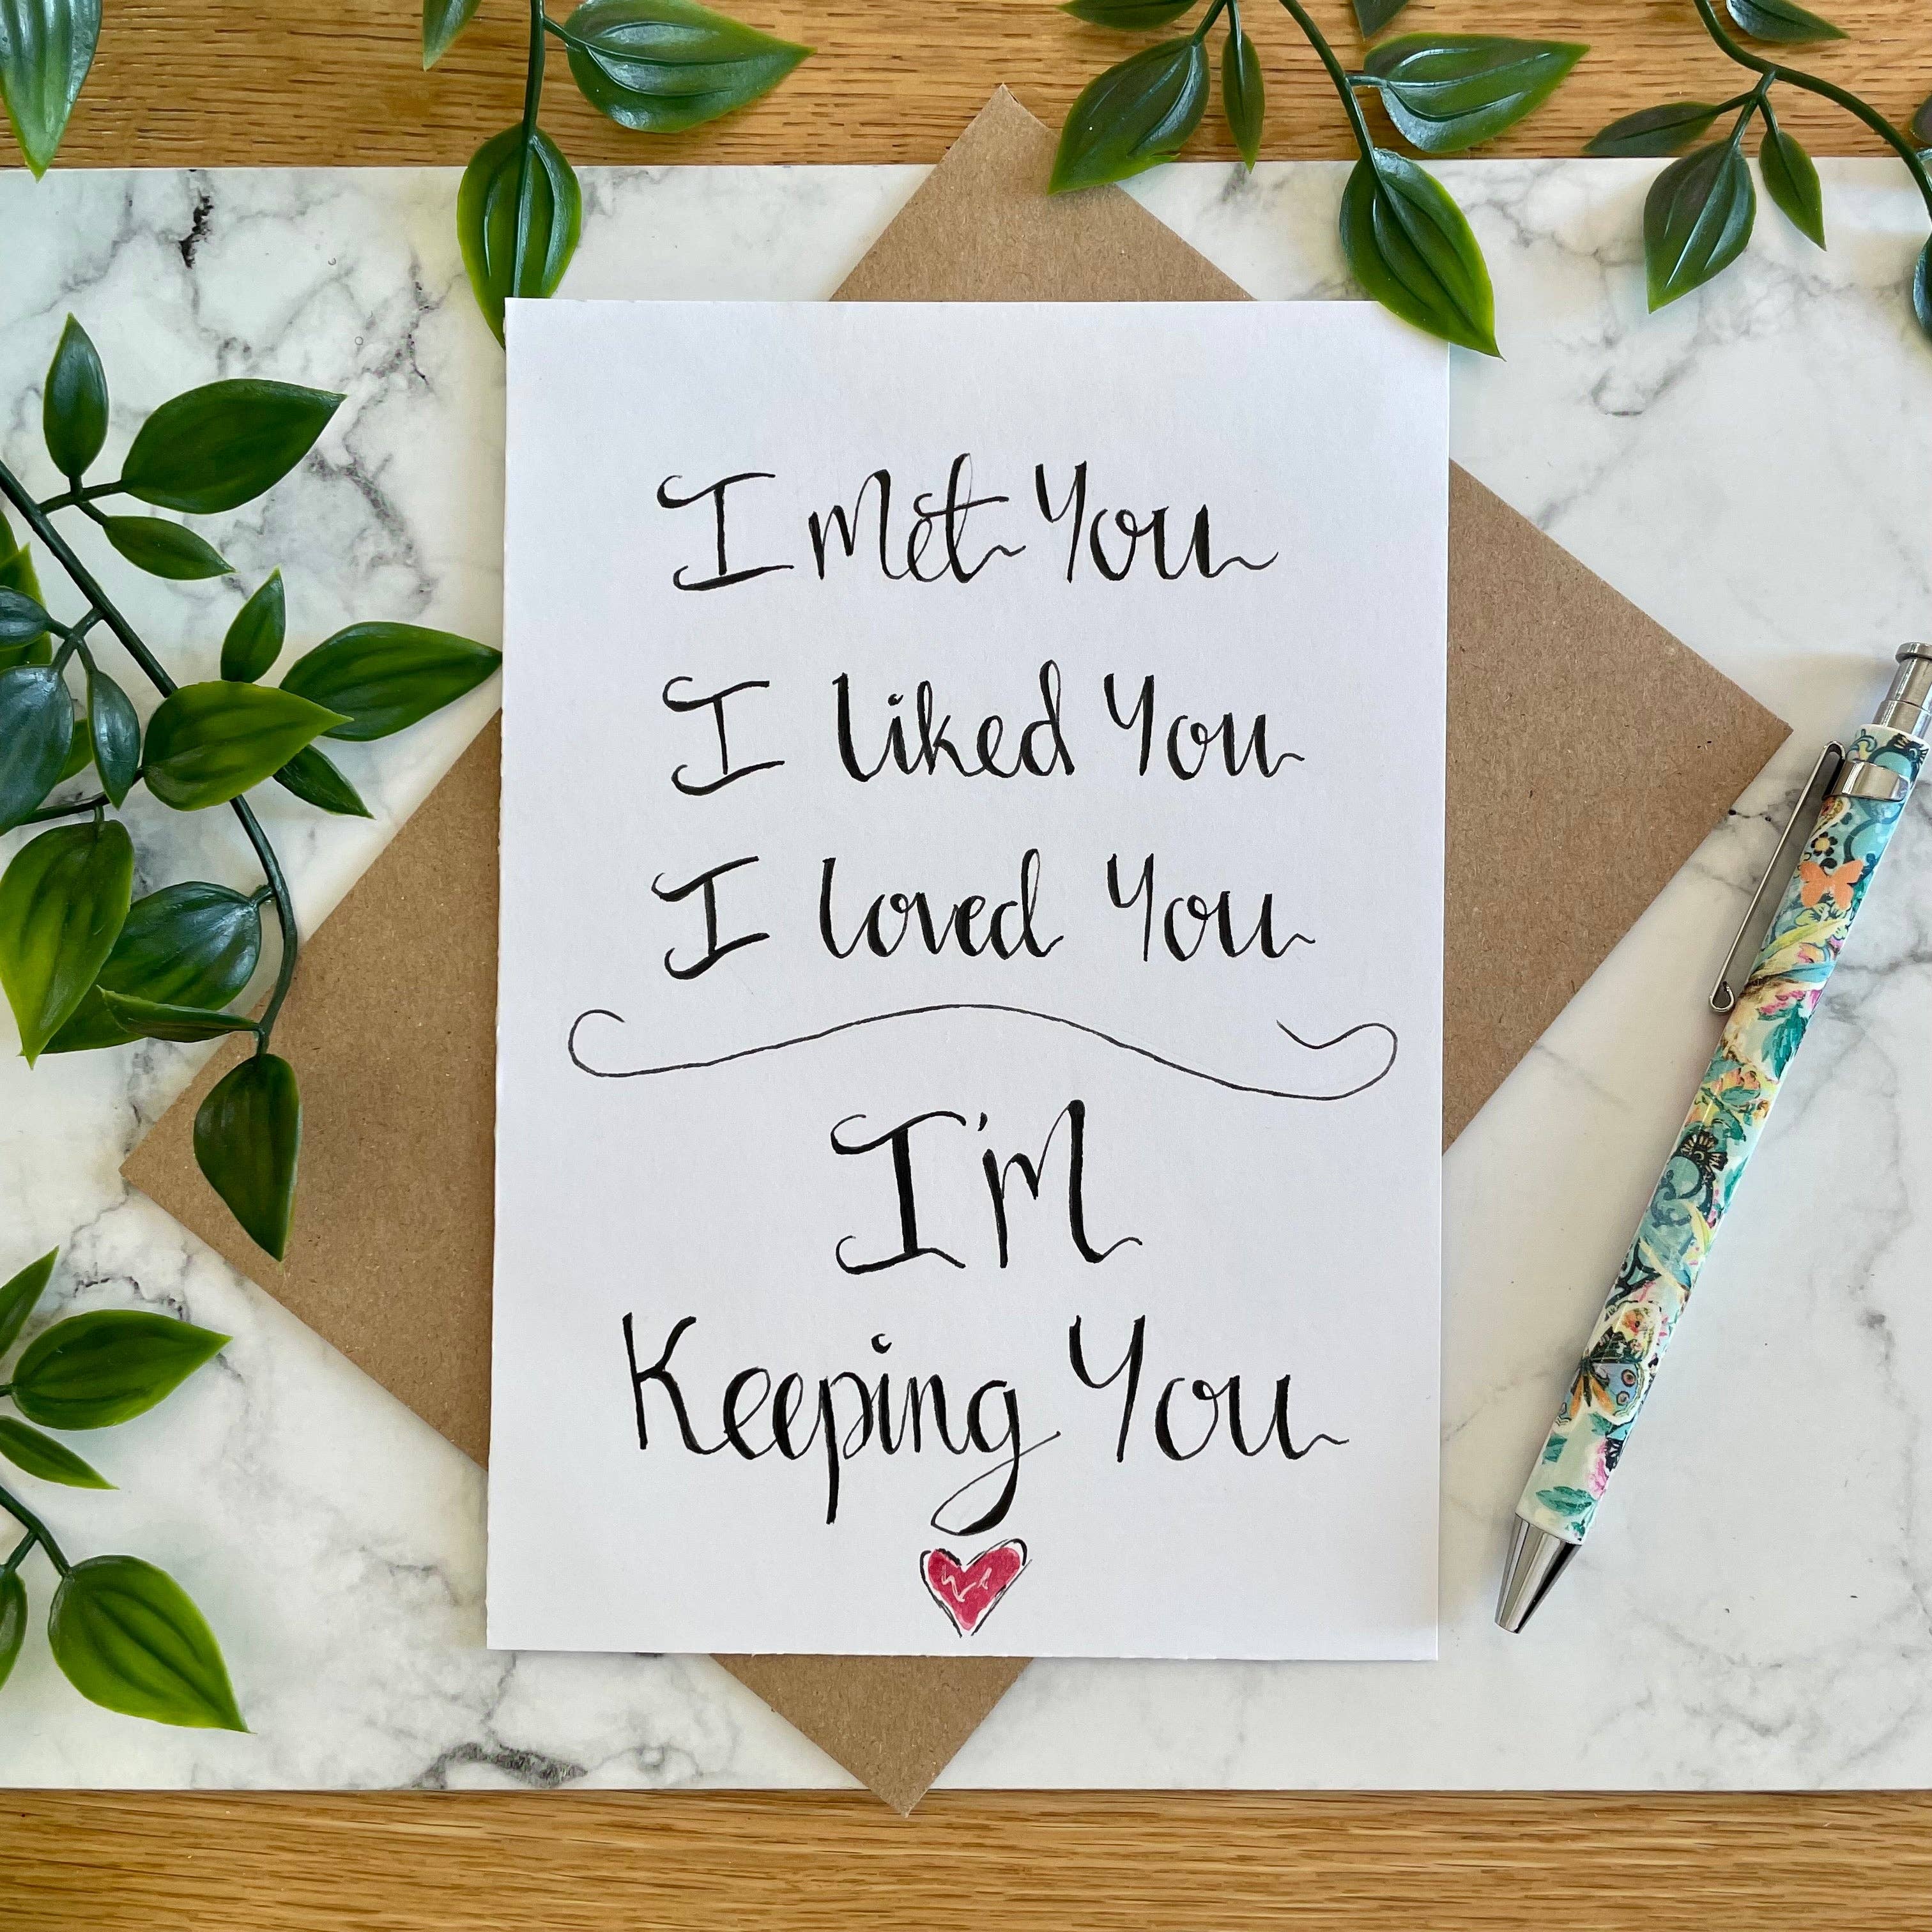 I Met You
I Liked You
I Loved You
I'm
Keeping You